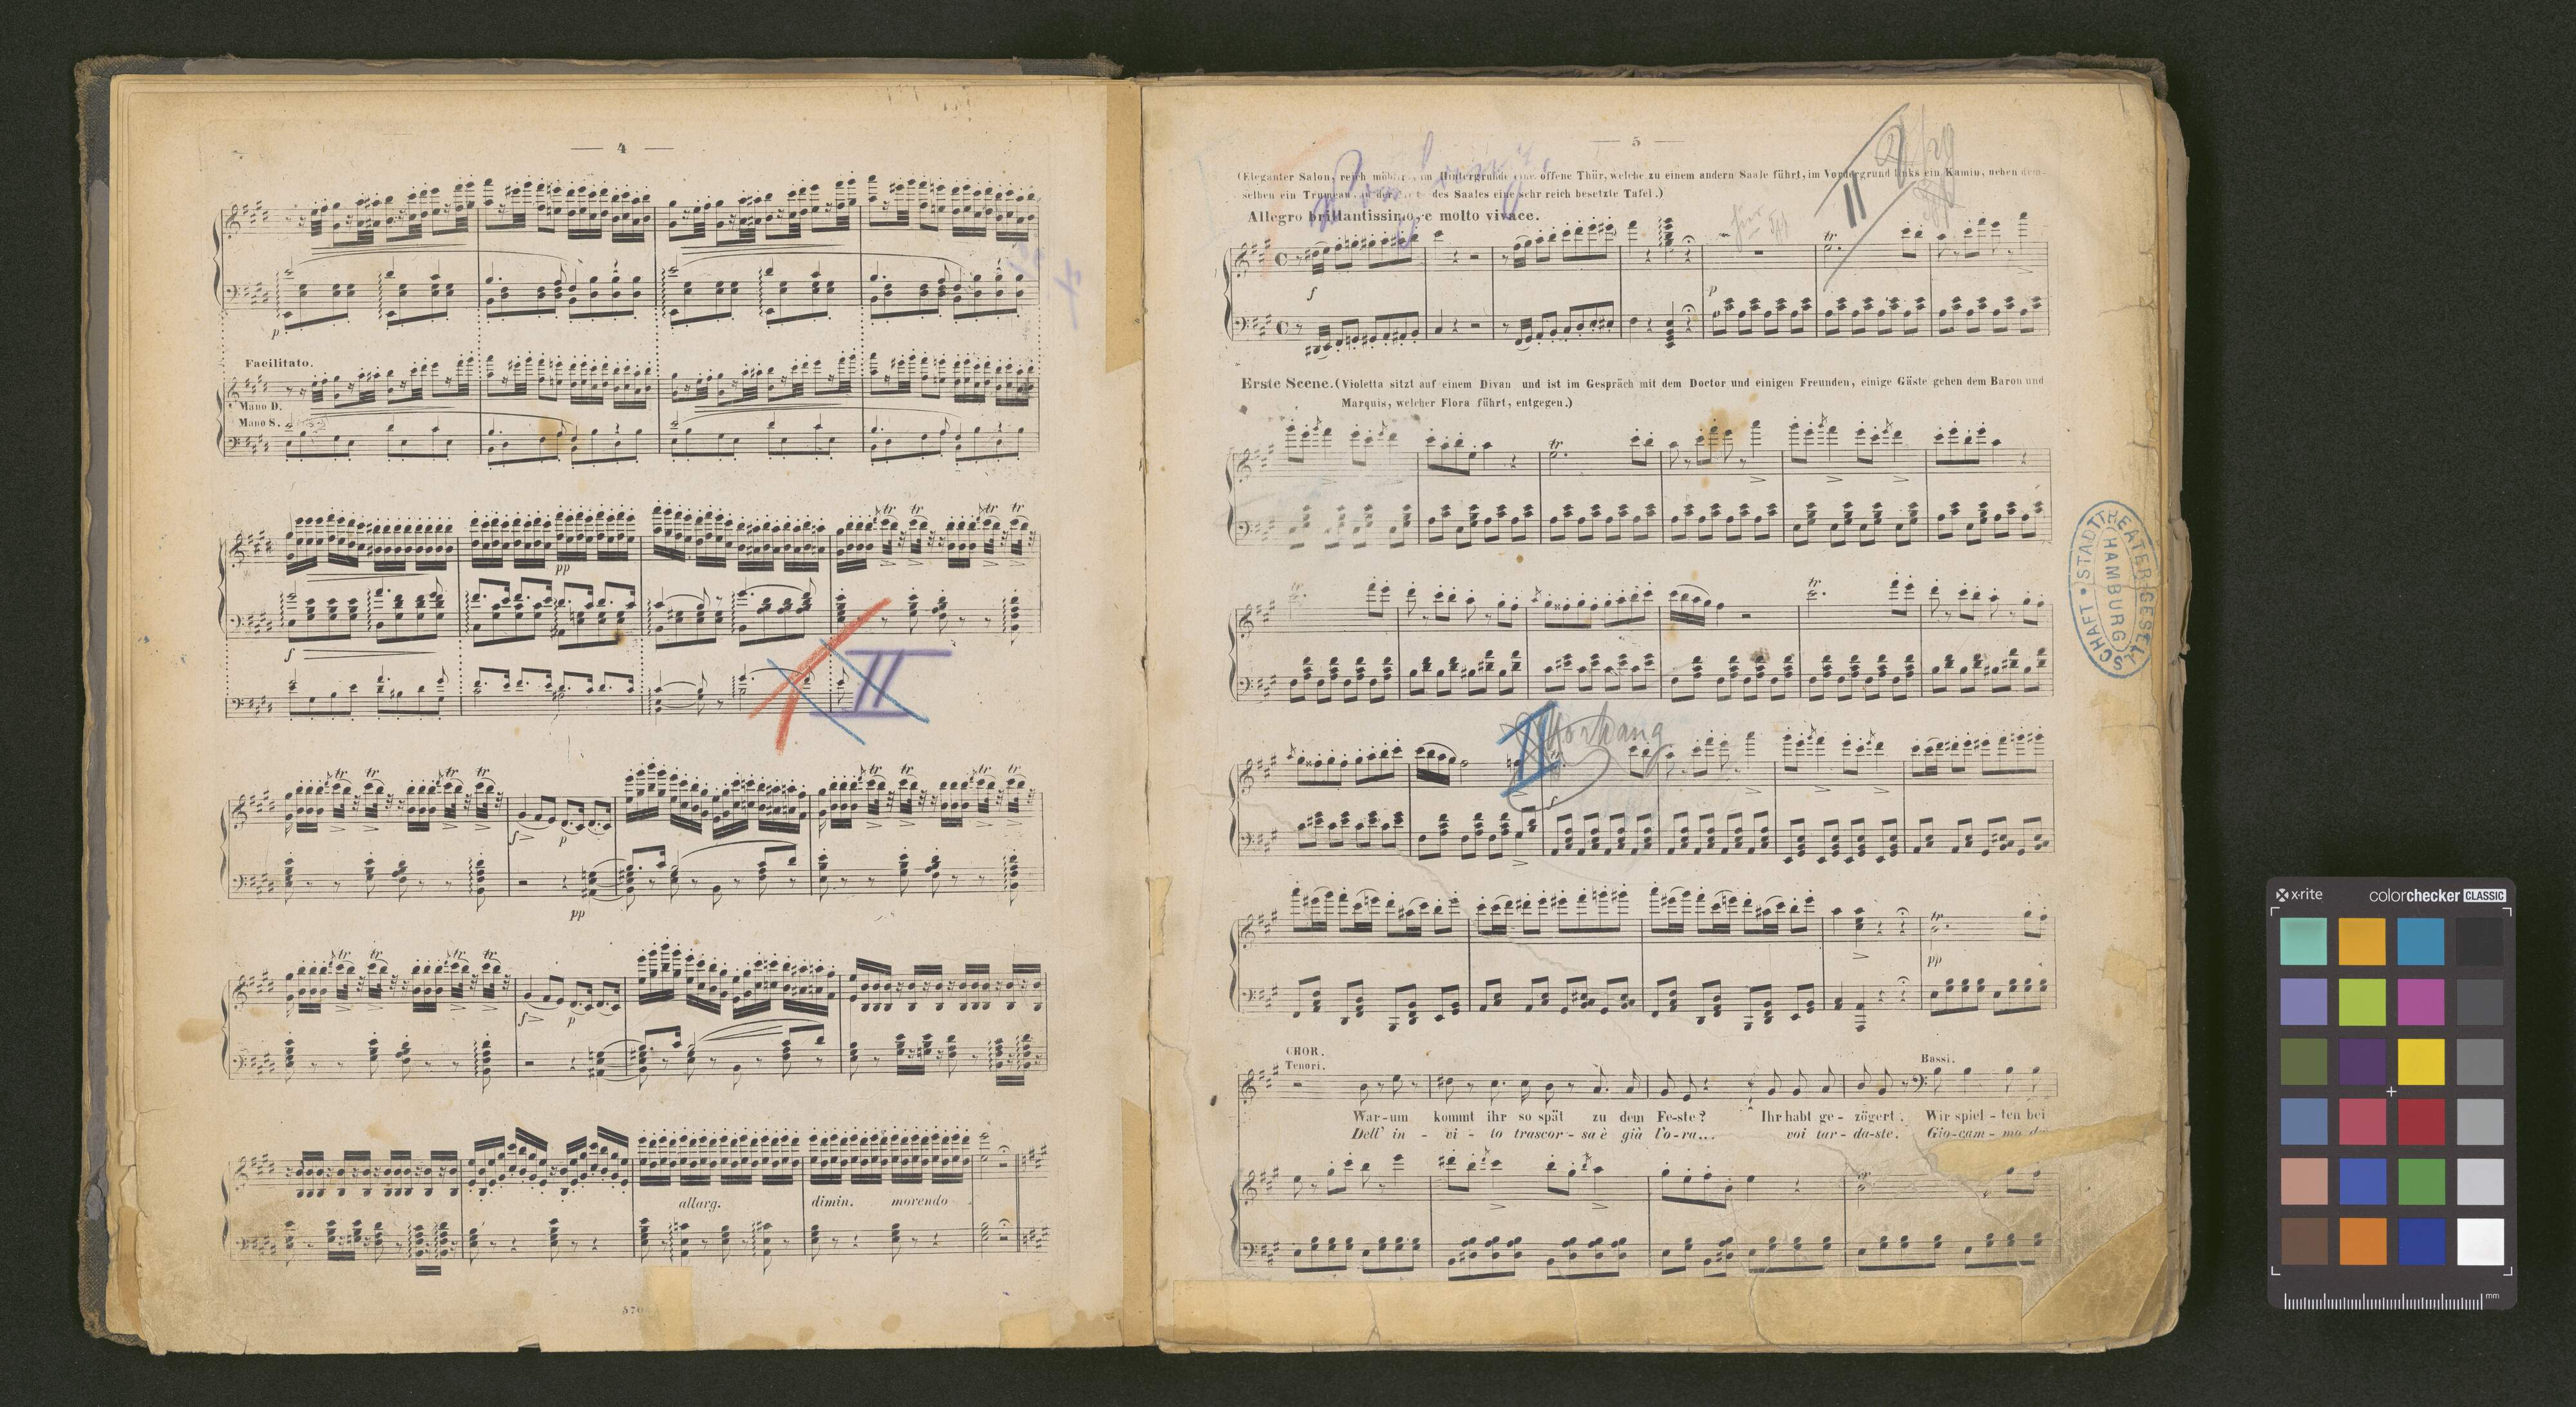 — 4 —
p
Facilitato.
Mano D.
Mano S.
pp tr tr tr tr
f
II
tr tr tr tr tr tr tr tr
f p
pp
tr tr tr tr
f p
allarg. dimin. morendo
570
— 5 —
(Eleganter Salon, reich im Hintergrunde eine offene Thür, welche zu einem andern Saale führt, im Vordergrund links ein Kamin, neben dem-
selben ein des Saales eine sehr reich besetzte Tafel.)
II
Allegro brillantissimo e molto vivace.
tr
f p
Erste Scene. (Violetta sitzt auf einem Divan und ist im Gespräch mit dem Doctor und einigen Freunden, einige Gäste gehen dem Baron und
Marquis, welcher Flora führt, entgegen.)
tr
tr tr
II Vorhang
tr
pp
CHOR.
Tenori. Bassi.
War-um kommt ihr so spät zu dem Fe-ste? Ihr habt ge-zögert. Wir spiel-ten bei
Dell' in-vi-to trascor-sa è già l'o-ra... voi tar-da-ste. Gio-cam-mo
STADTTHEATER-GESELLSCHAFT
HAMBURG
x-rite colorchecker CLASSIC
mm